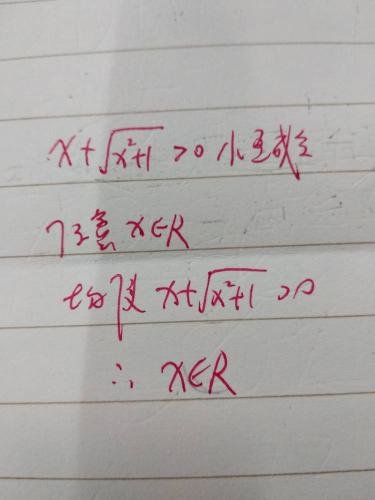 x+√(x²+1) >0 小 恒成立
任意 x∈R
均使 x+√(x²+1) >0
∴ x∈R